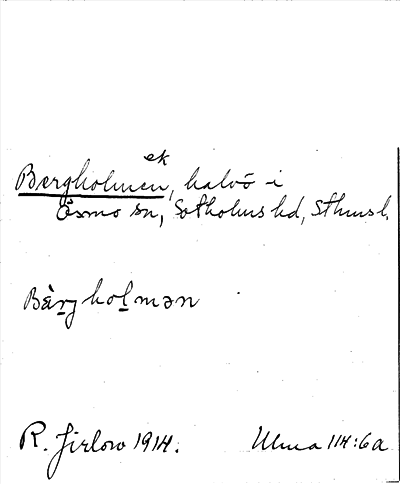 ek
Bergholmen, halvö i
Ösmo sn, Sotholms hd, Sthmsl.
Bàrgholmən
R. Jirlow 1914.
Ulma 114:6a